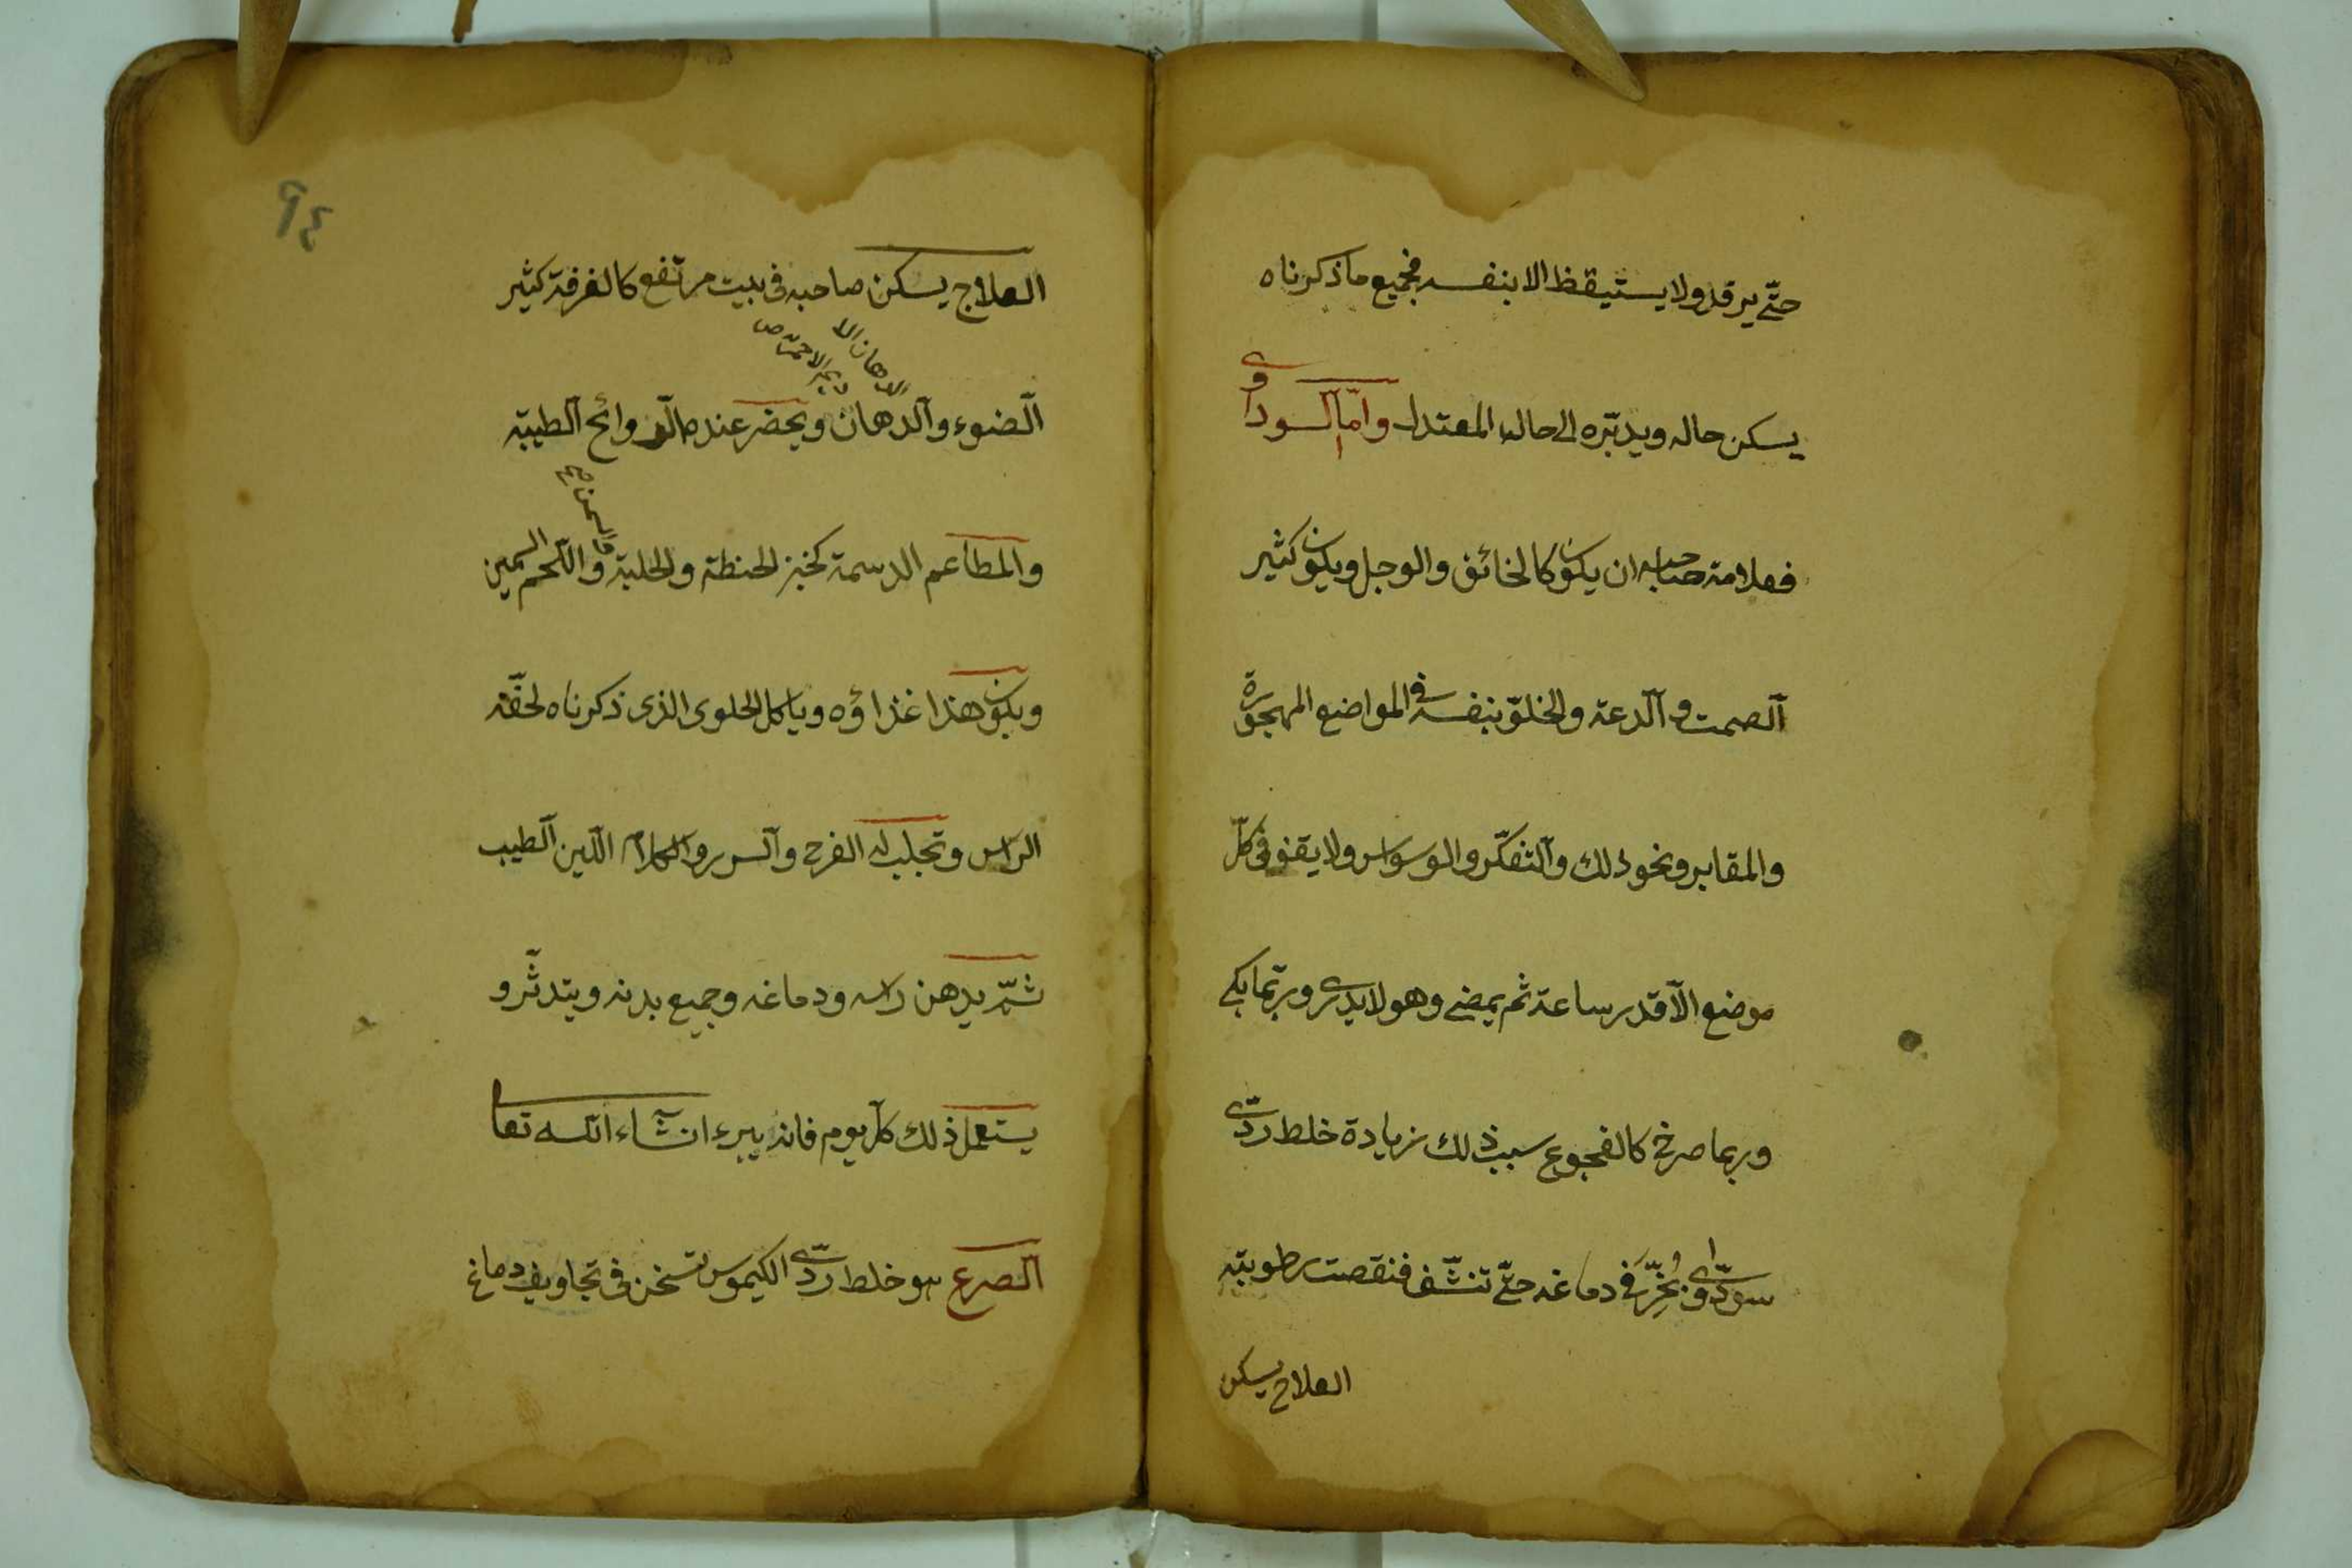 حتّى يرقد ولا يستيقظ الا بنفسه فجميع ماذكرناه
يسكن حاله ويدبّره الى حاله المعتدل وامّا السوداوى
فعلامة صاحبه ان يكون كالخائف والوجل ويكون كثير
الصمت والدعة والخلوّ بنفسه فى المواضع المهجورة
والمقابر ونحو ذلك والتفكّر والوسواس ولا يقف فى كلّ
موضع الّا قدر ساعة ثم يمضى وهو لا يدرى وربّما بكى
وربما صرخ كالفجوع سبب ذلك زيادة خلط ردّى
سوداوّى بُخِّرَ فى دماغه حتّى تنشّف فنقصت رطوبتيّه
العلاج يسكن
٩٤
العلاج يسكن صاحبه فى بيت مرتفع كالغرفة كثير
الادهان
الضوء والدهان ويحضر عنده الروائح الطيبّه
والسمن صح
والمطاعم الدسمة كخبز الحنطة والحلبة واللحم السمين
ويكون هذا غذاؤه وياكل الحلوى الذى ذكرناه لخفّة
الراس وتجلب له الفرح والسرور والكلام اللّين الطيب
ثمّ يدهن راسه ودماغه وجميع بدنه ويتدثّر و
يستعمل ذلك كلّ يوم فانه يبرء ان شاء الله تعا
الصرع هو خلط ردّى الكيموس تسخن فى تجاويف دماغ